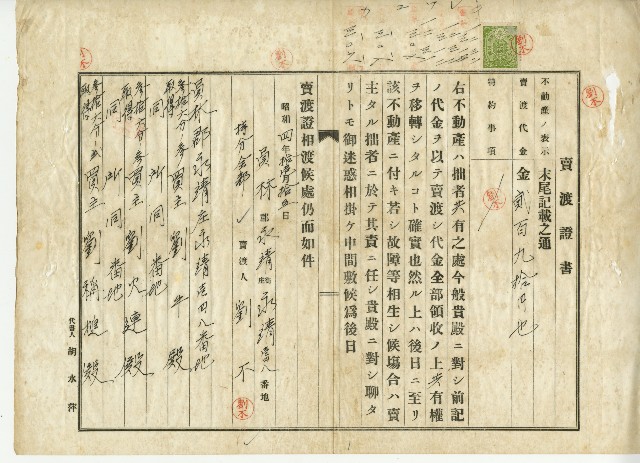 賣渡證書
不動産ノ表示 末尾記載之通
賣渡代金 金貳百九拾円也
特約事項
右不動産ハ拙者共有之處今般貴殿ニ對シ前記
ノ代金ヲ以テ賣渡シ代金全部領收ノ上共有權
ヲ移轉シタルコト確實也然ル上ハ後日ニ至リ
該不動產ニ付キ若シ故障等相生シ候塲合ハ賣
主タル拙者ニ於テ其責ニ任シ貴殿ニ對シ聊タ
リトモ御迷惑相掛ケ申間敷候爲後日
賣渡證相渡候處仍而如件
昭和四年拾貳月拾五日
員林郡永靖庄永靖百四八番地
持分全部 賣渡人 劉不
員林郡永靖庄永靖百四八番地
參拾六分ノ 買主 劉牛 殿
取得
同所同番地
參拾六分ノ 買主 劉火連 殿
取得
同所同番地
參拾六分ノ 買主 劉 殿
取得
代書人 胡水萍